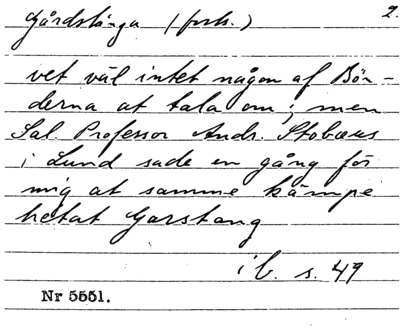 Gårdstånga (forts.) 2.
vet väl intet någon af Bön-
derna at tala om; men
Sal. Professor Ands. Stobæus
i Lund sade en gång för
mig at samme kämpe
hetat Garstang
ib. s. 49
Nr 5551.